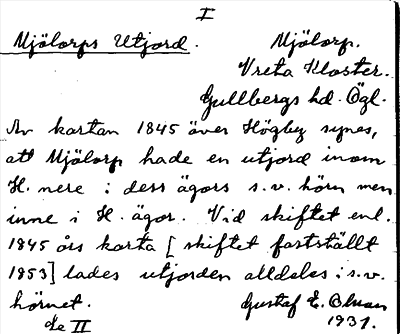 I
Mjölorps Utjord.
Mjölorp.
Vreta Kloster.
Gullbergs hd. Ögl.
Av kartan 1845 över Högby synes,
att Mjölorp hade en utjord inom
H. nere i dess ägors s.v. hörn men
inne i H. ägor. Vid skiftet enl.
1845 års karta [skiftet fastställt
1853] lades utjorden alldeles i s.v.
hörnet.
Gustaf E.
de II
1931.